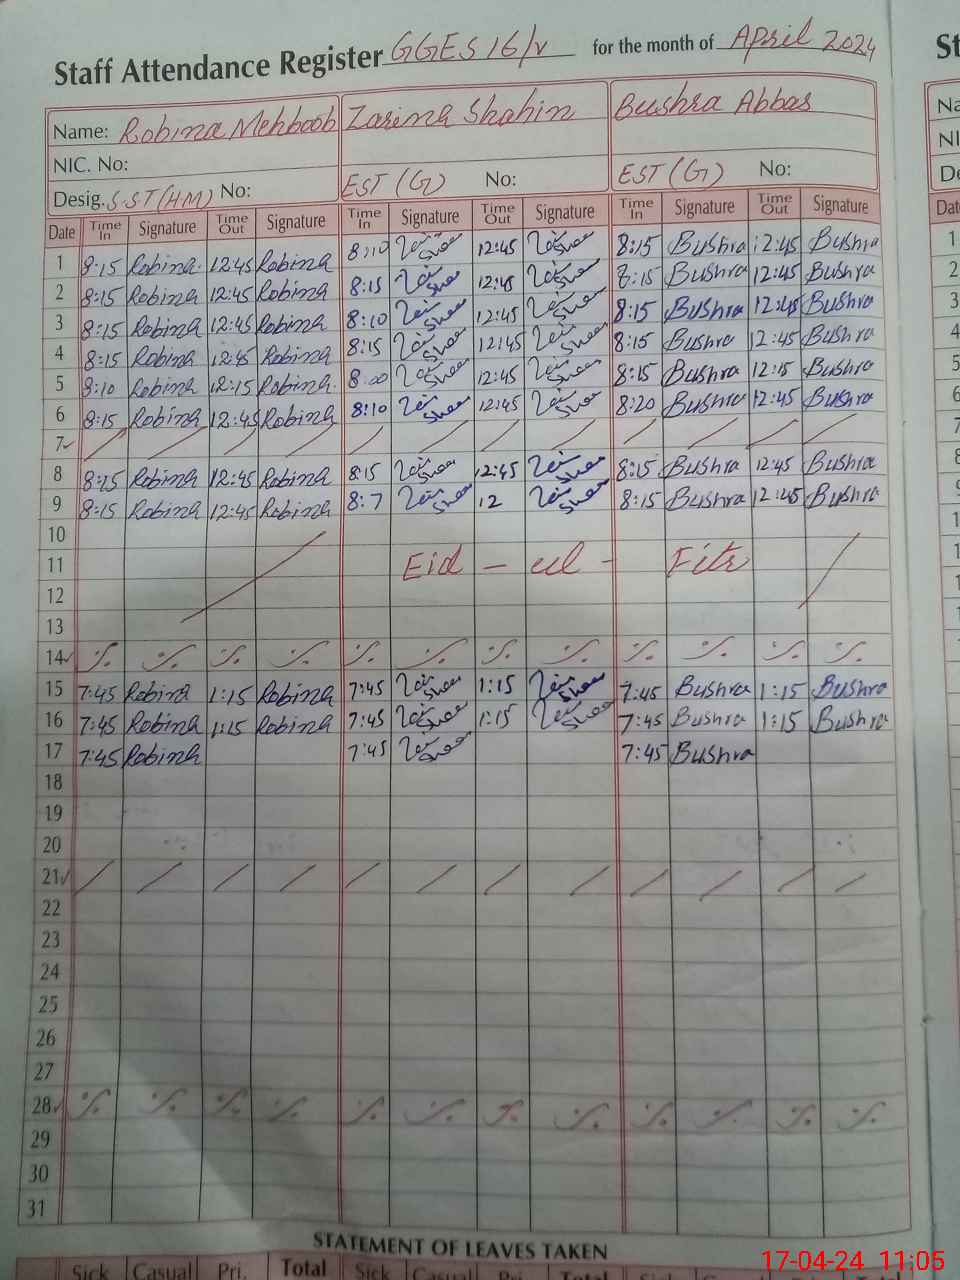 Staff Attendance Register GGES 16/v for the month of April 2024
St
Name: Robina Mehboob Zarina Shahin Bushra Abbas
Na
NIC. No:
NI
Desig. S.ST(HM) No: EST (G) No: EST (G) No:
De
Date Time In Signature Time Out Signature Time In Signature Time Out Signature Time In Signature Time Out Signature
Dat
1 8:15 Robina 12:45 Robina 8:10 12:45 8:15 Bushra 12:45 Bushra 1
2 8:15 Robina 12:45 Robina 8:15 12:45 8:15 Bushra 12:45 Bushra 2
3 8:15 Robina 12:45 Robina 8:10 12:45 8:15 Bushra 12:45 Bushra 3
4 8:15 Robina 12:45 Robina 8:15 12:45 8:15 Bushra 12:45 Bushra 4
5 8:10 Robina 12:15 Robina 12:45 8:15 Bushra 12:15 Bushra 5
6 8:15 Robina 12:45 Robina 8:10 12:45 8:20 Bushra 12:45 Bushra 6
7 7
8 8:15 Robina 12:45 Robina 8:15 12:45 8:15 Bushra 12:45 Bushra 8
9 8:15 Robina 12:45 Robina 8:7 12 8:15 Bushra 12:45 Bushra 9
10
11 Eid - ul - Fitr
12
13
14
15 7:45 Robina 1:15 Robina 7:45 1:15 7:45 Bushra 1:15 Bushra
16 7:45 Robina 1:15 Robina 7:45 1:15 7:45 Bushra 1:15 Bushra
17 7:45 Robina 7:45 7:45 Bushra
18
19
20
21
22
23
24
25
26
27
28
29
30
31
STATEMENT OF LEAVES TAKEN
Sick Casual Pri. Total Sick Casual Pri. Total Sick
17-04-24 11:05